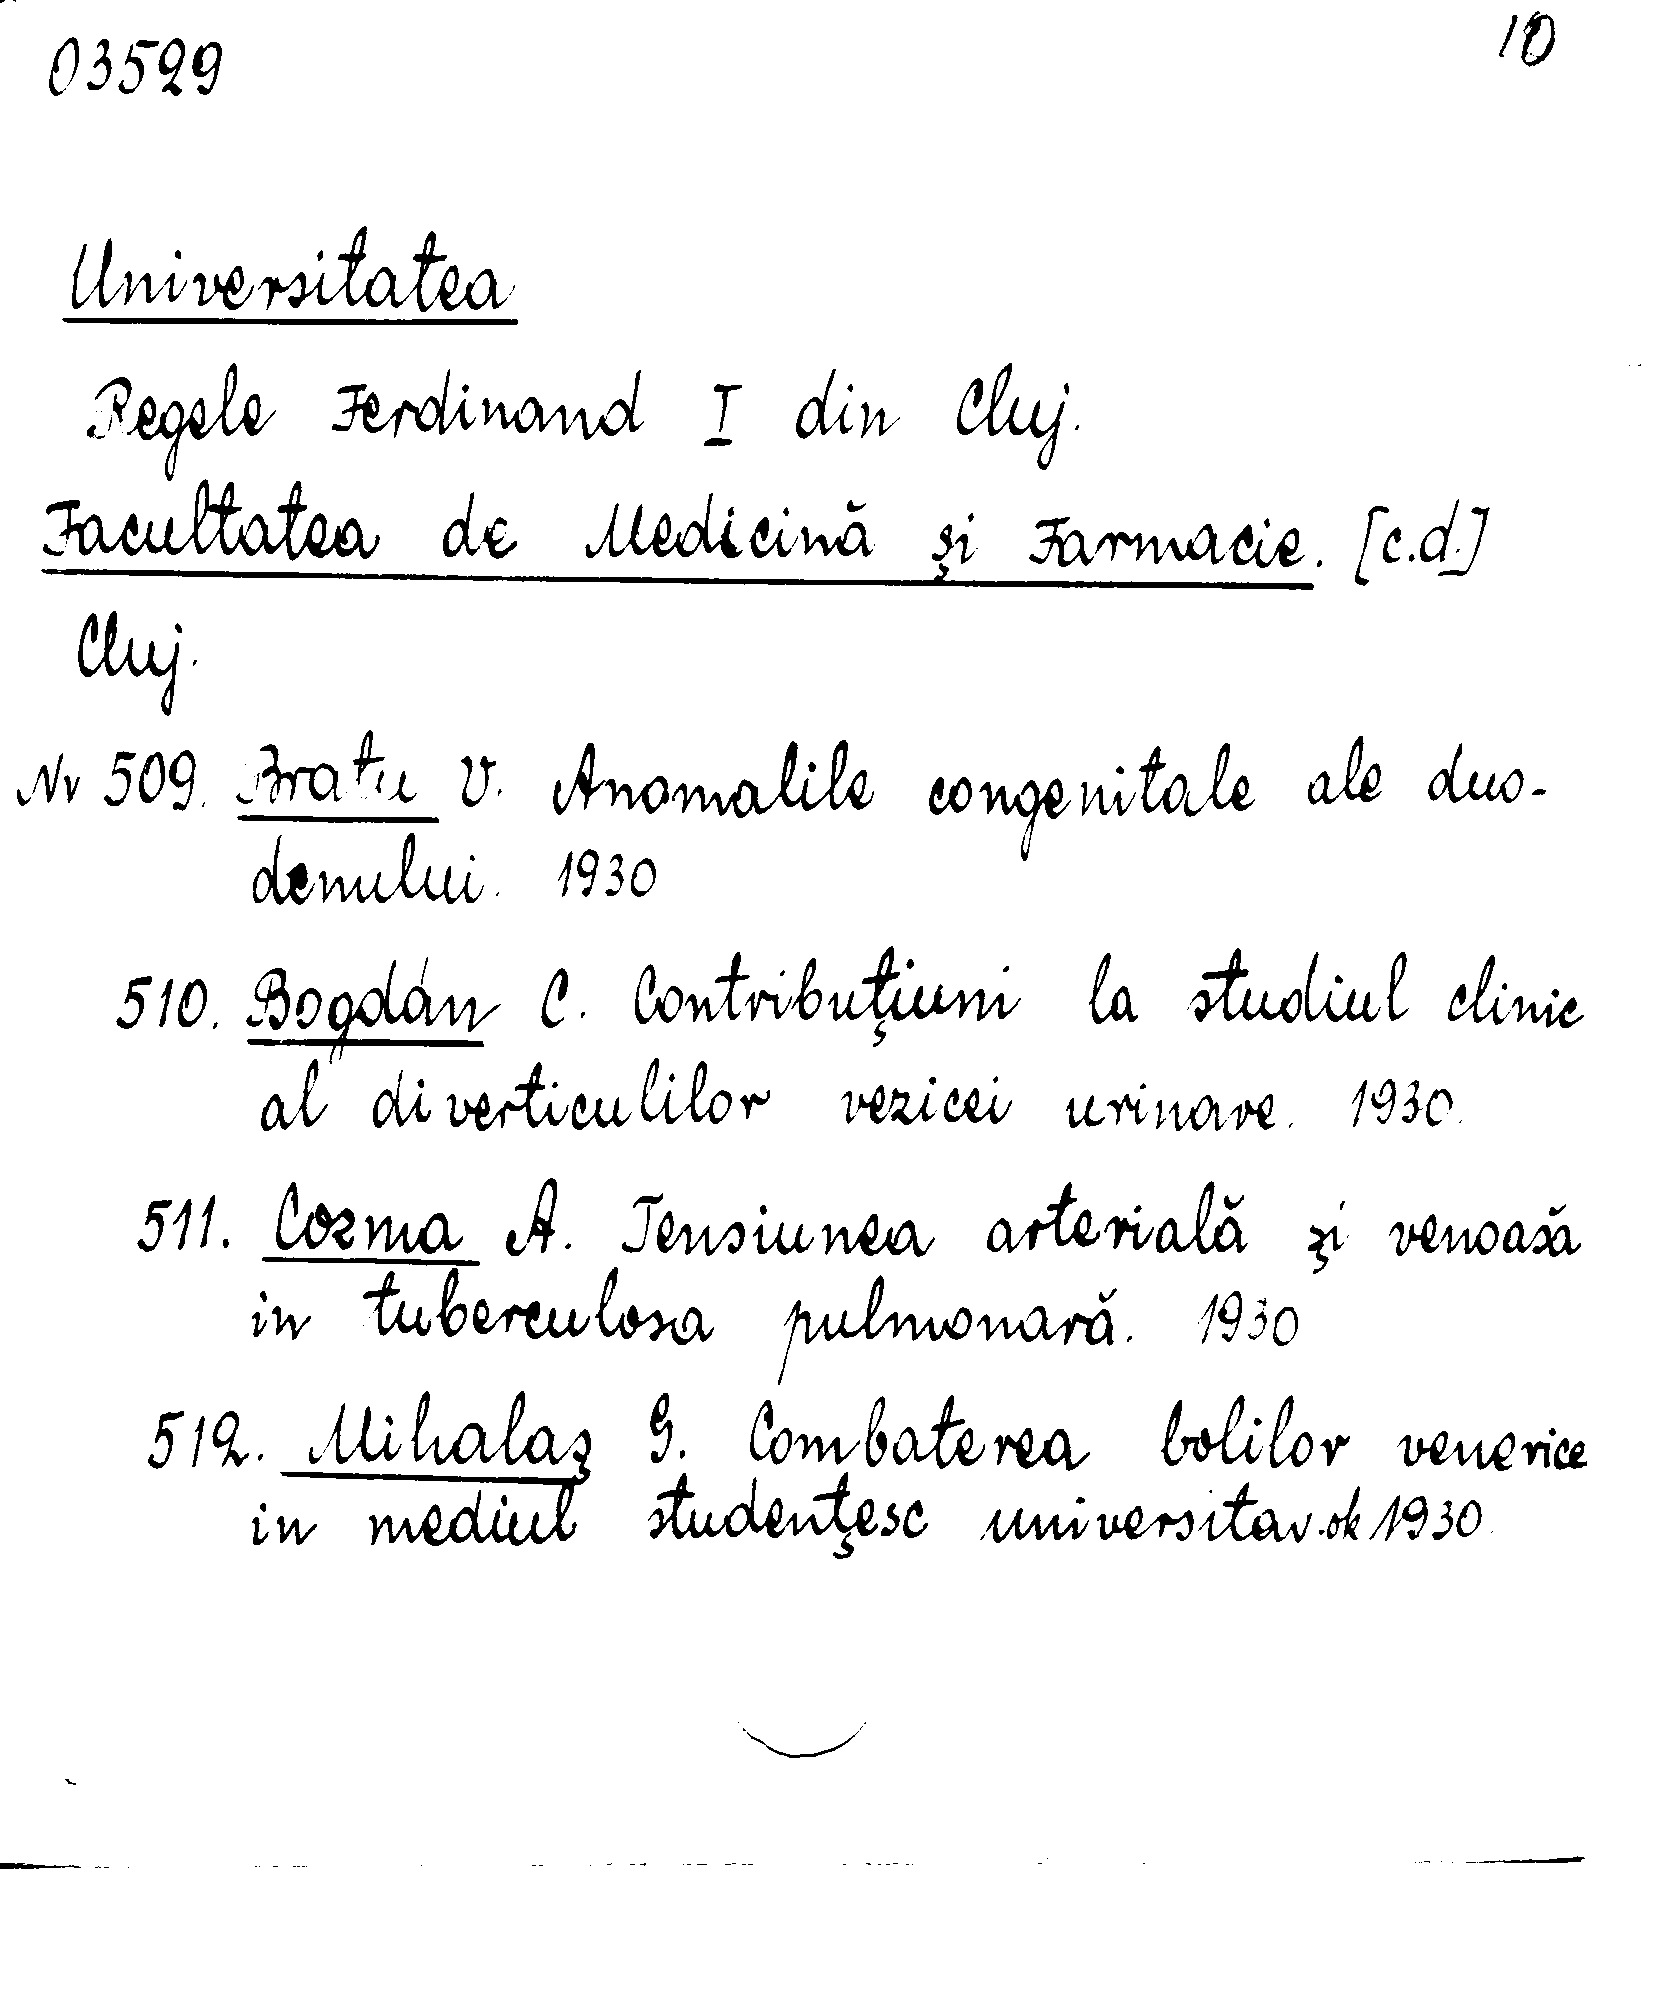 03529
10
Universitatea
Regele Ferdinand I din Cluj.
Facultatea de Medicină şi Farmacie. [c.d.]
Cluj.
Nr 509. Bratu V. Anomalile congenitale ale duo-
denului. 1930
510. Bogdan C. Contribuţiuni la studiul clinic
al diverticulilor vezicei urinare. 1930.
511. Cozma A. Tensiunea arterială şi venoasă
in tuberculosa pulmonară. 1930
512. Mihalaş G. Combaterea bolilor venerice
in mediul studenţesc universitar. ok 1930.